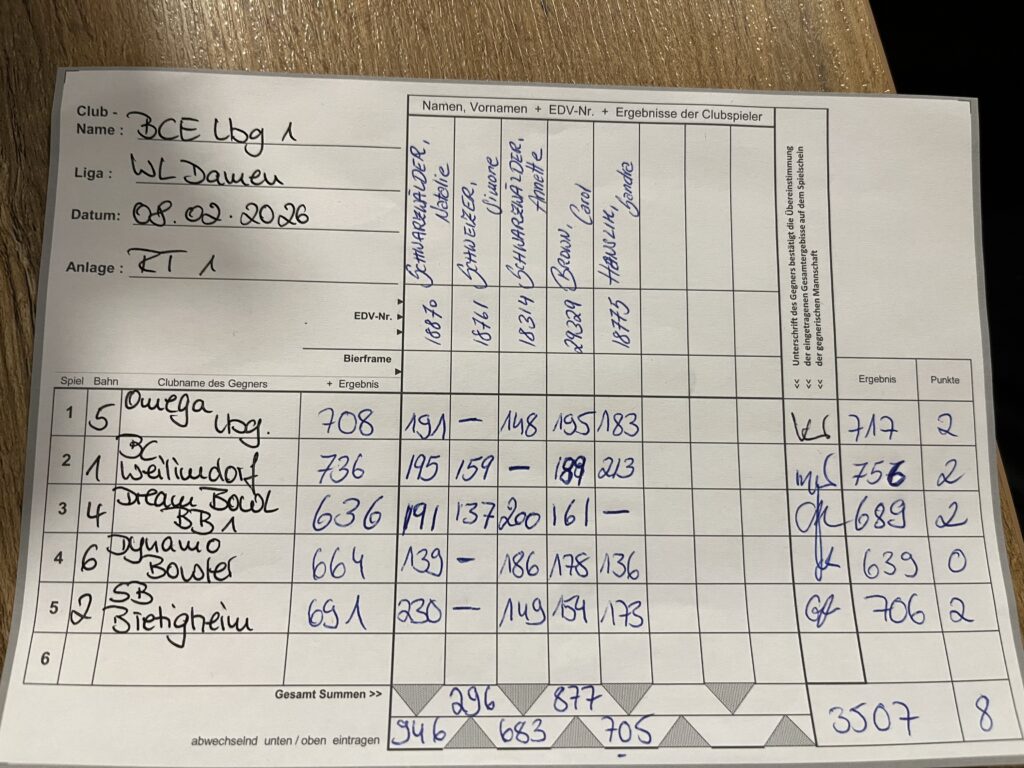 Club -
Name : BCE Lbg 1
Liga : WL Damen
Datum: 08.02.2026
Anlage : RT 1
Namen, Vornamen + EDV-Nr. + Ergebnisse der Clubspieler
SCHWARZWÄLDER,
Natalie
SCHWEIZER,
Simone
SCHWARZWÄLDER,
Annette
BROWN,
Carol
<< Unterschrift des Gegners bestätigt die Übereinstimmung
<< der eingetragenen Gesamtergebisse auf dem Spielschein
<< der gegnerischen Mannschaft
EDV-Nr. 18870 18761 18314 18775
Bierframe
Spiel Bahn Clubname des Gegners + Ergebnis Ergebnis Punkte
1 5 Omega Lbg. 708 191 – 148 195 183 717 2
2 1 BC Weilimdorf 736 195 159 – 189 213 756 2
3 4 Dream Bowl BB 1 636 191 137 200 161 – 689 2
4 6 Dynamo 664 139 – 186 178 136 639 0
5 2 SB Bietigheim 691 230 – 149 154 173 706 2
6
Gesamt Summen >> 296 877
abwechselnd unten / oben eintragen 946 683 705 3507 8